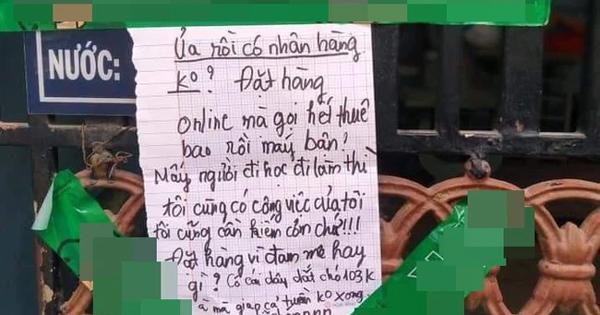 NƯỚC:
Ủa rồi có nhân hàng
ko? Đặt hàng
online mà gọi hết thuê
bao rồi máy bận!
Mấy người đi học đi làm thì
tôi cũng có công việc của tôi
tôi cũng cần kiếm cơm chứ!!!
Đặt hàng vì đam mê hay
gì? Có cái dây dắt chó 103K
à mà giao cả tuần ko xong